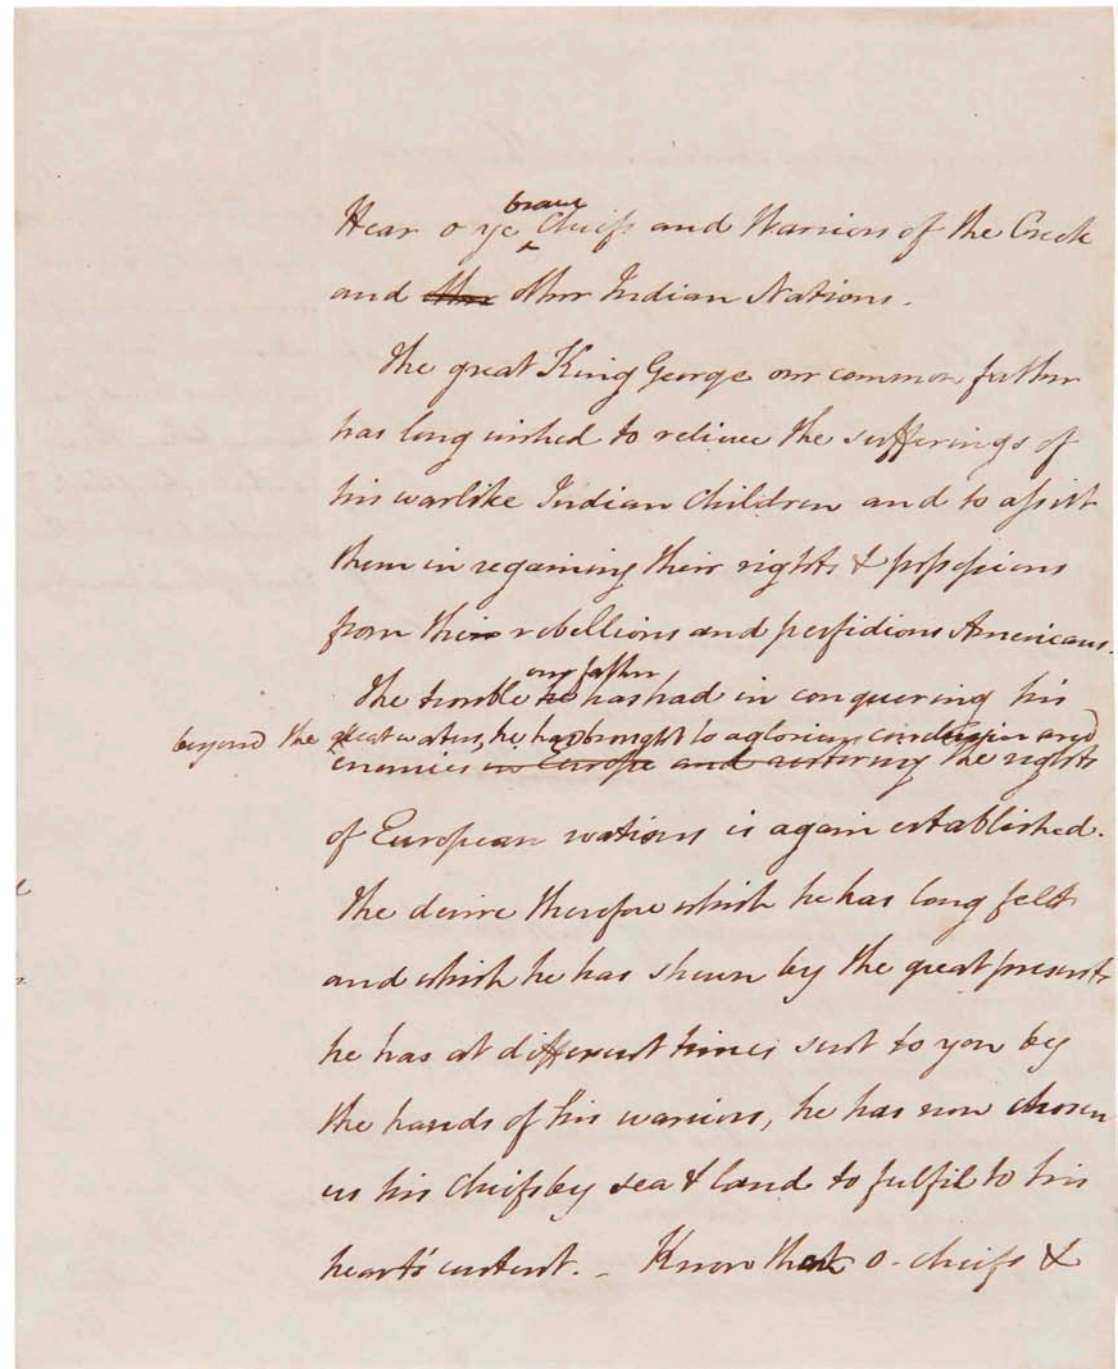 brave
Hear o ye ^ Chiefs and Warriors of the Creek
and other other Indian Nations.
The great King George our common father
has long wished to relieve the sufferings of
his warlike Indian Children and to assist
them in regaining their rights & possessions
from their rebellious and perfidious Americans.
our father
The trouble he has had in conquering his
beyond the great waters, he has brought to a glorious conclusion and
enemies in Europe and restoring the rights
of European nations is again established.
The desire therefore which he has long felt
and which he has shewn by the great presents
he has at different times sent to you by
the hands of his warriors, he has now chosen
us his Chiefs by sea & land to fulfil to his
heart's content. - Know that o chiefs &